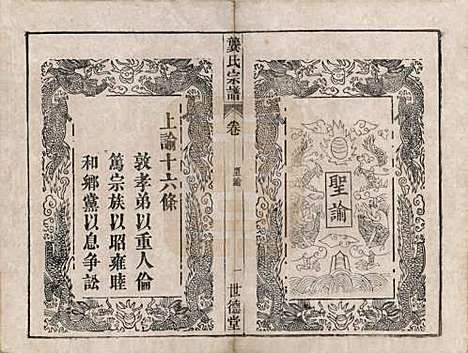 聖諭
龔氏宗譜
卷
聖諭
一
世德堂
上諭十六條
敦孝弟以重人倫
篤宗族以昭雍睦
和鄉黨以息争訟